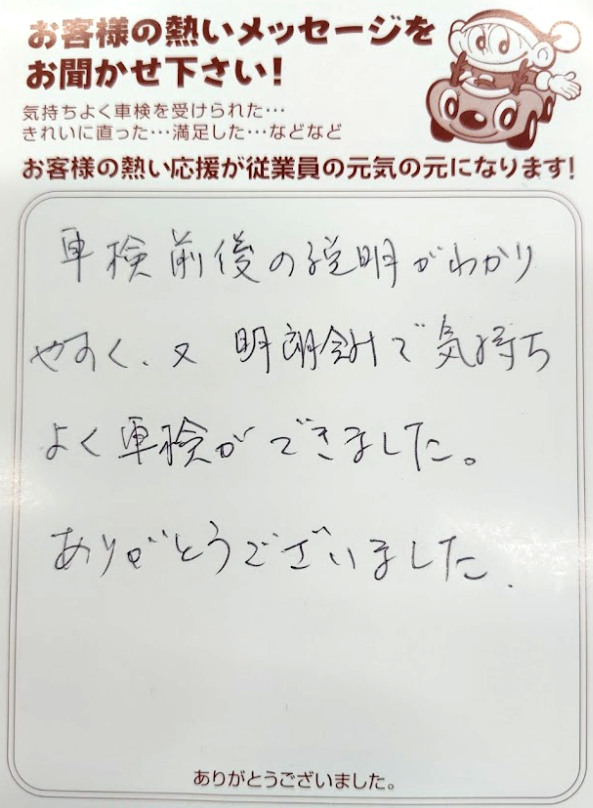 お客様の熱いメッセージを
お聞かせ下さい!
気持ちよく車検を受けられた…
きれいに直った…満足した…などなど
お客様の熱い応援が従業員の元気の元になります!
車検前後の説明がわかり
やすく、又 明朗会計で気持ち
よく車検ができました。
ありがとうございました.
ありがとうございました。